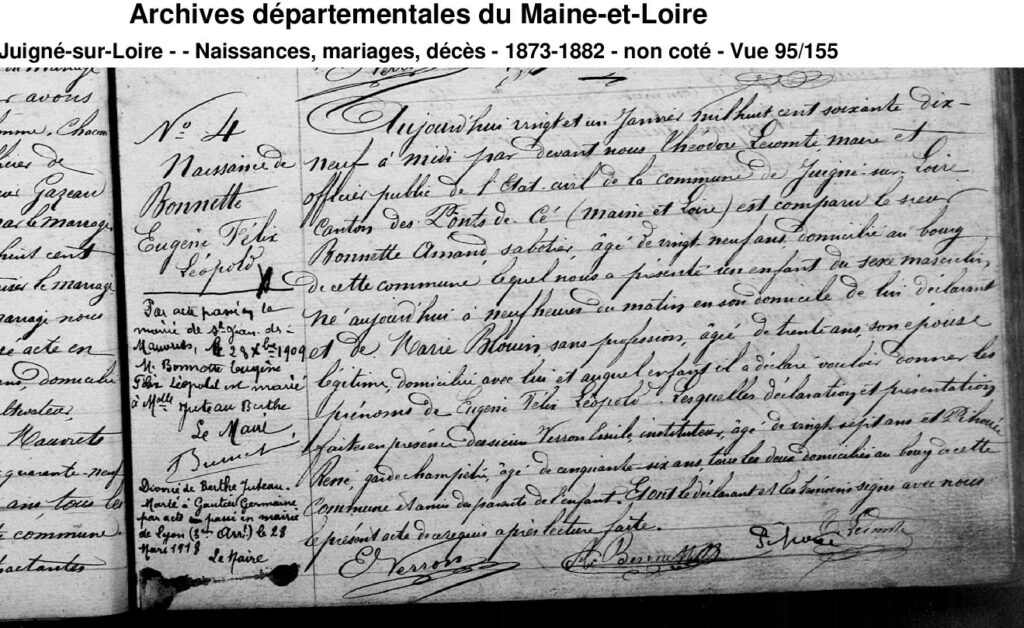 Archives départementales du Maine-et-Loire
Juigné-sur-Loire - - Naissances, mariages, décès - 1873-1882 - non coté - Vue 95/155
avons
Gazeau
par le mariage
huit cent
le mariage
mariage nous
acte en
domicilié
quarante-neuf
ans tous les
commune
N° 4
Naissance de
Bonnette
Eugène Félix
Léopold
Par acte passé en la
mairie de St Jean-des-
Mauvrets, le 28 Xbre 1909
M. Bonnette Eugène
Félix Léopold est marié
à Melle Juteau Berthe
Le Maire
Divorcé de Berthe Juteau.
Marié à Gautier Germaine
par acte passé en mairie
de Lyon (3e Arrt) le 28
Mars 1918
Le Maire
Aujourd'hui vingt et un Janvier mil huit cent soixante dix-
neuf à midi par devant nous Théodore Lecomte, maire et
officier public de l'Etat-civil de la commune de Juigné-sur-Loire
Canton des Ponts-de-Cé (maine et Loire) est comparu le sieur
Bonnette Amand sabotier, âgé de vingt-neuf ans, domicilié au bourg
de cette commune lequel nous a présenté un enfant du sexe masculin,
né aujourd'hui à neuf heures du matin en son domicile de lui déclarant
et de Marie Blouin sans profession, âgée de trente ans, son épouse
légitime, domiciliée avec lui et auquel enfant il a déclaré vouloir donner les
prénoms de Eugène Félix Léopold. Lesquelles déclaration et présentation
faites en présence des sieurs Verron Emile, instituteur, âgé de vingt-sept ans et
René, garde champêtre, âgé de cinquante-six ans, tous les deux domiciliés au bourg de cette
Commune et amis du parents de l'enfant. Et ont le déclarant et les témoins signé avec nous
le présent acte de ce requis après lecture faite.
E. Verron
A. Bonnette
Lecomte